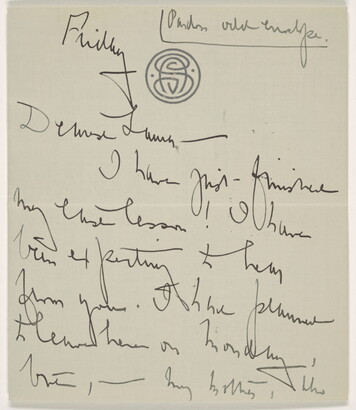 Pardon old envelope.
Friday
Dearest Laura —
I have just finished
my last lesson! I have
been expecting to hear
from you. I have planned
to leave here on Monday,
but, — my brother, the